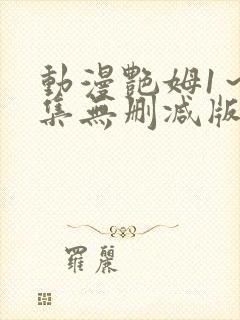 動漫艷姆1~
集無刪減版
羅麗